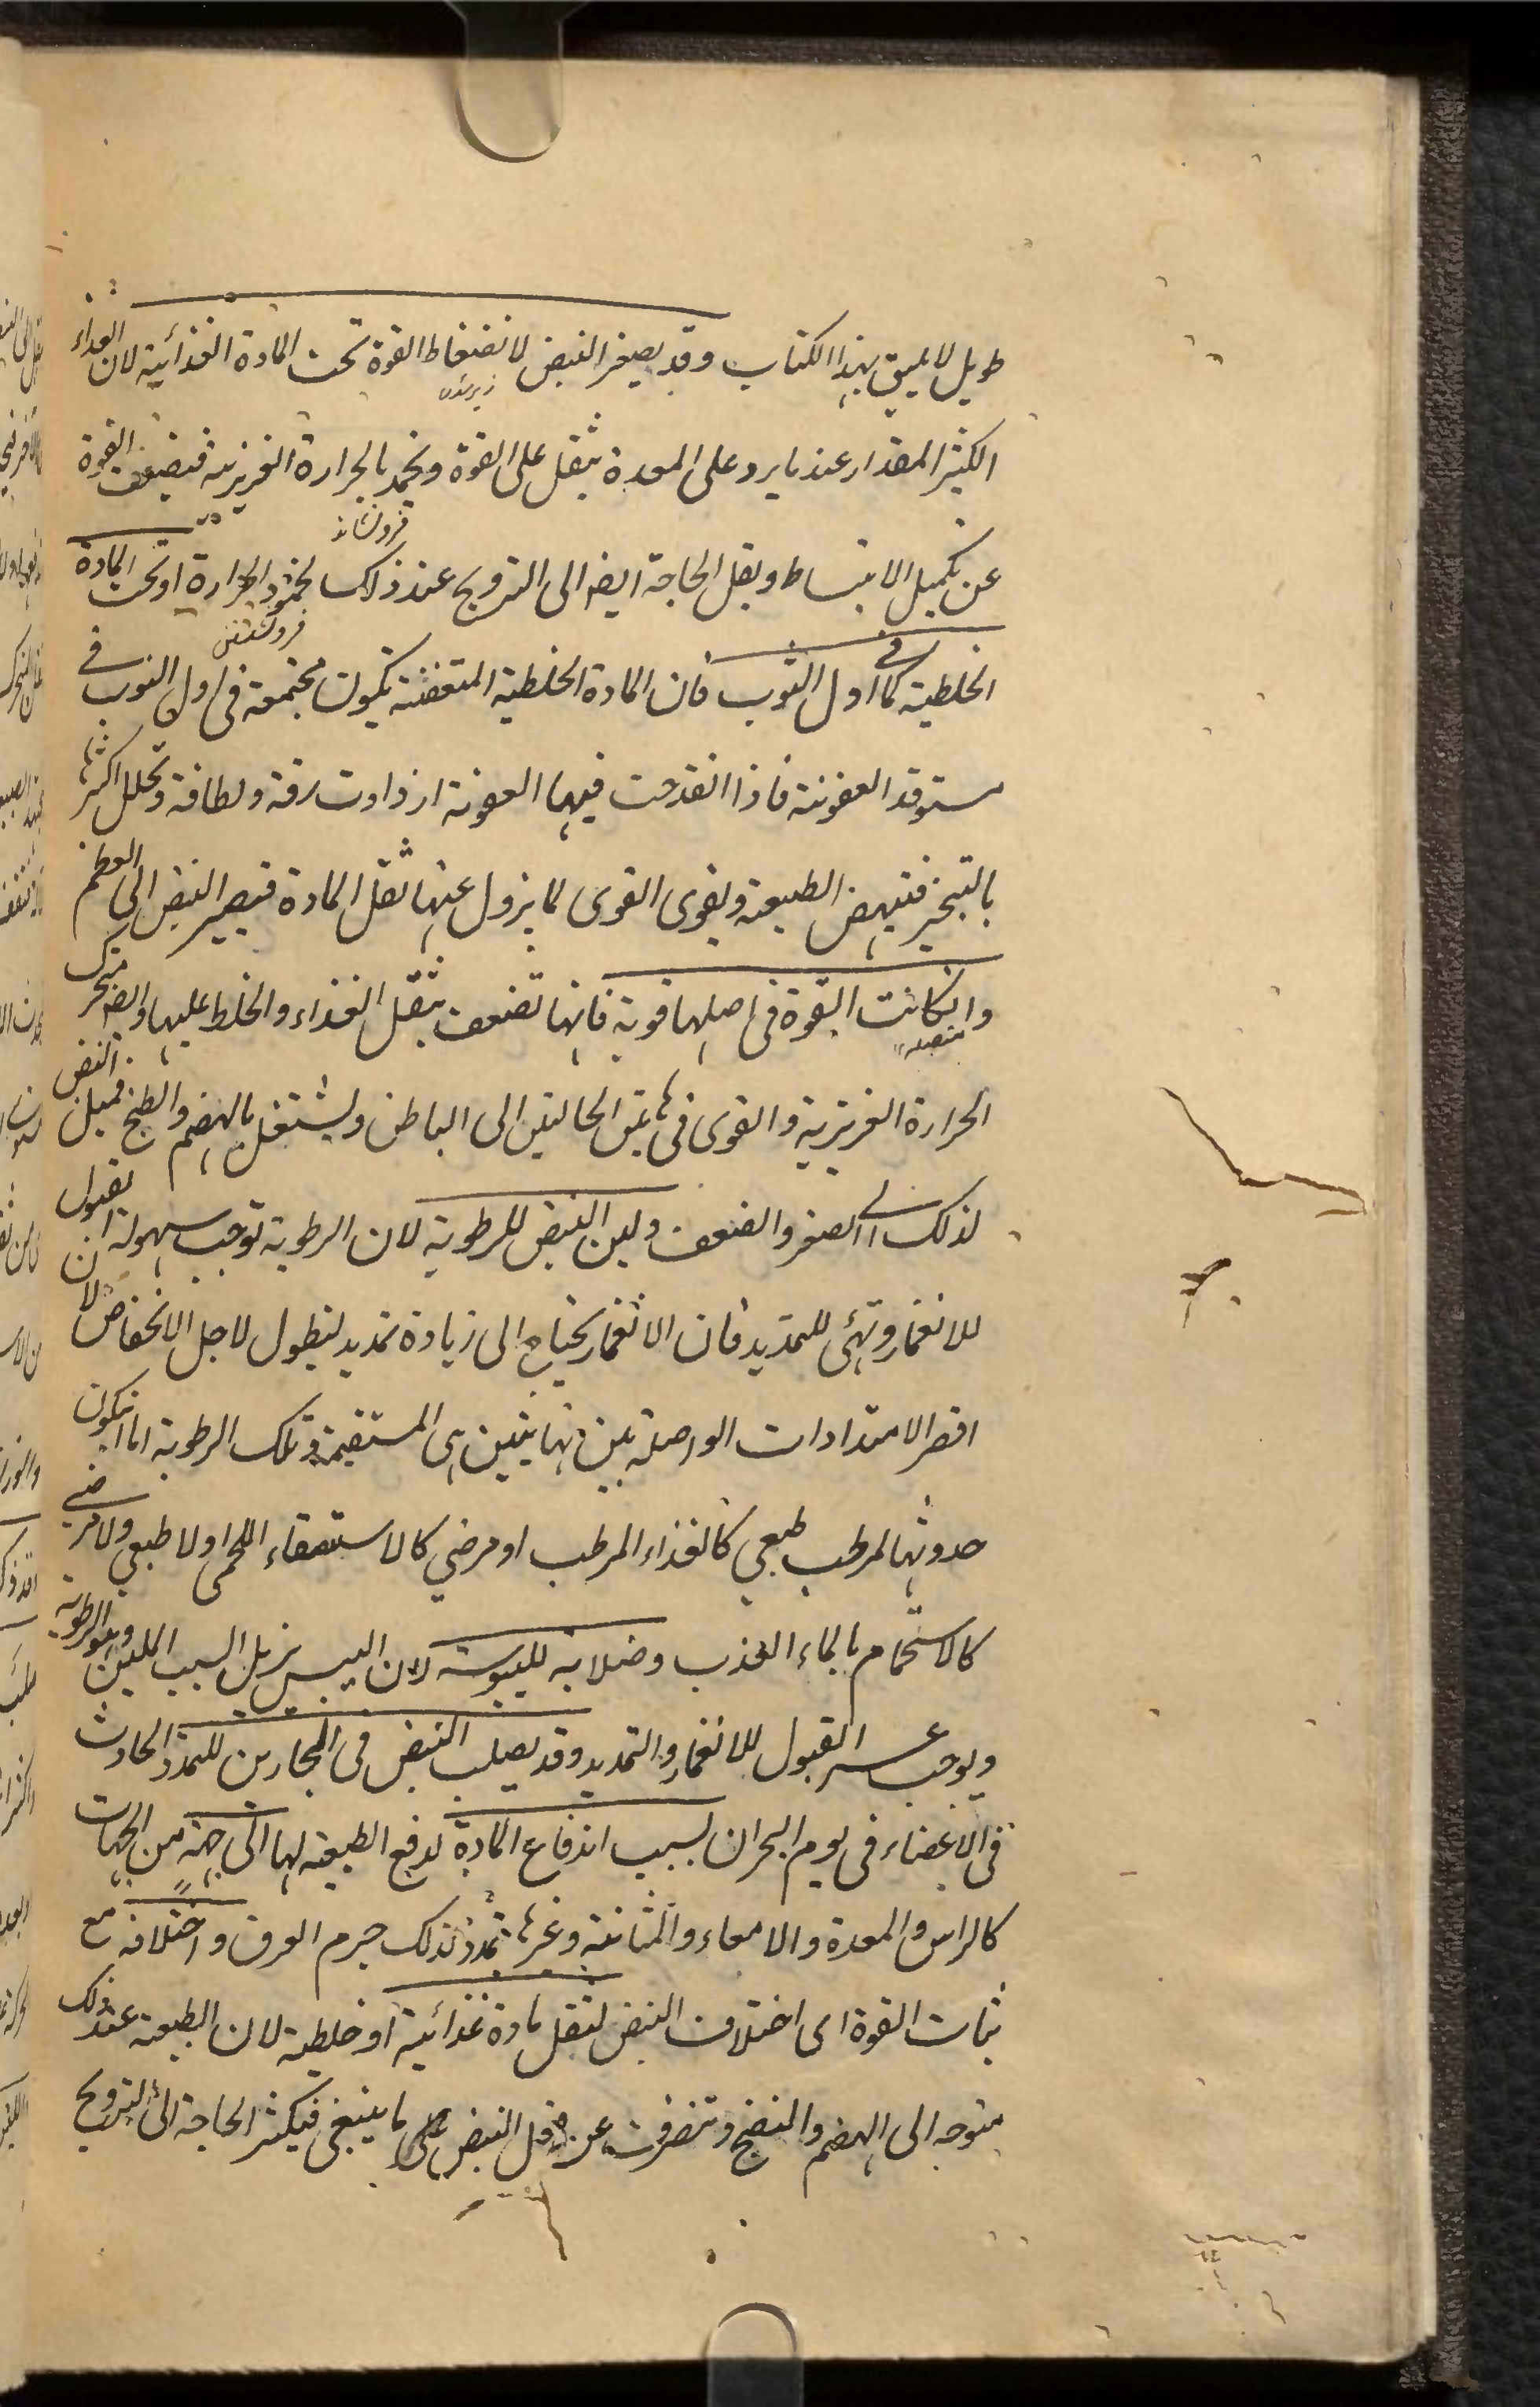 طويل لا يليق بهذا الكتاب وقد يصغر النبض لانضغاط القوة تحت المادة الغذائية لان الغذاء
الكثير المقدار عند ما يرد على المعدة يثقل على القوة ويخمد الحرارة الغريزية فيضعف القوة
عن تكميل الانبساط ويقل الحاجة ايضا الى الترويح عند ذلك لخمود الحرارة او تحت المادة
فرونشاندن
فرونشستن
الخلطية كما فى اول النوب فان المادة الخلطية المتعفنة تكون مجتمعة فى اول النوب فى
مستوقد العفونة فاذا انقدحت فيها العفونة ازدادت رقة ولطافة وتحلل اكثرها
بالتبخر فتنهض الطبيعة ويقوى القوى لما يزول عنها ثقل المادة فيصير النبض الى العظم
وانكانت القوة فى اصلها قوية فانها تضعف بثقل الغذاء والخلط عليها وايضا يتحرك
متصلة
الحرارة الغريزية والقوى فى هاتين الحالتين الى الباطن ويشتغل بالهضم والطبخ فميلن النبض
لذلك الى الصغر والضعف ولين النبض للرطوبة لان الرطوبة توجب سهولة القبول
للانغمار وتهئ للتمديد فان الانغمار يحتاج الى زيادة تمديد ليطول لاجل الانخفاض لان
اقصر الامتدادات الواصلة بين نهايتين هى المستقيمة وتلك الرطوبة اما انيكون
حدوثها لمرطب طبعي كالغذاء المرطب او مرضي كالاستسقاء اللحمى او لا طبعي ولا مرضي
كالاستحمام بالماء العذب وصلابته لليبوسة لان اليبس يزيل السبب الملين وهو الرطوبة
ويوجب عسر القبول للانغمار والتمديد وقد يصلب النبض فى البحارين للتمدد الحادث
فى الاعضاء فى يوم البحران بسبب اندفاع المادة لدفع الطبيعة لها الى جهة من الجهات
كالراس والمعدة والامعاء والمثانة وغيرها تمدد لذلك جرم العرق واختلافه مع
ثبات القوة اى اختلاف النبض لثقل مادة غذائية او خلطية لان الطبيعة عند ذلك
متوجه الى الهضم والنضج وتنصرف عن فعل النبض على ما ينبغى فيكثر الحاجة الى الترويح